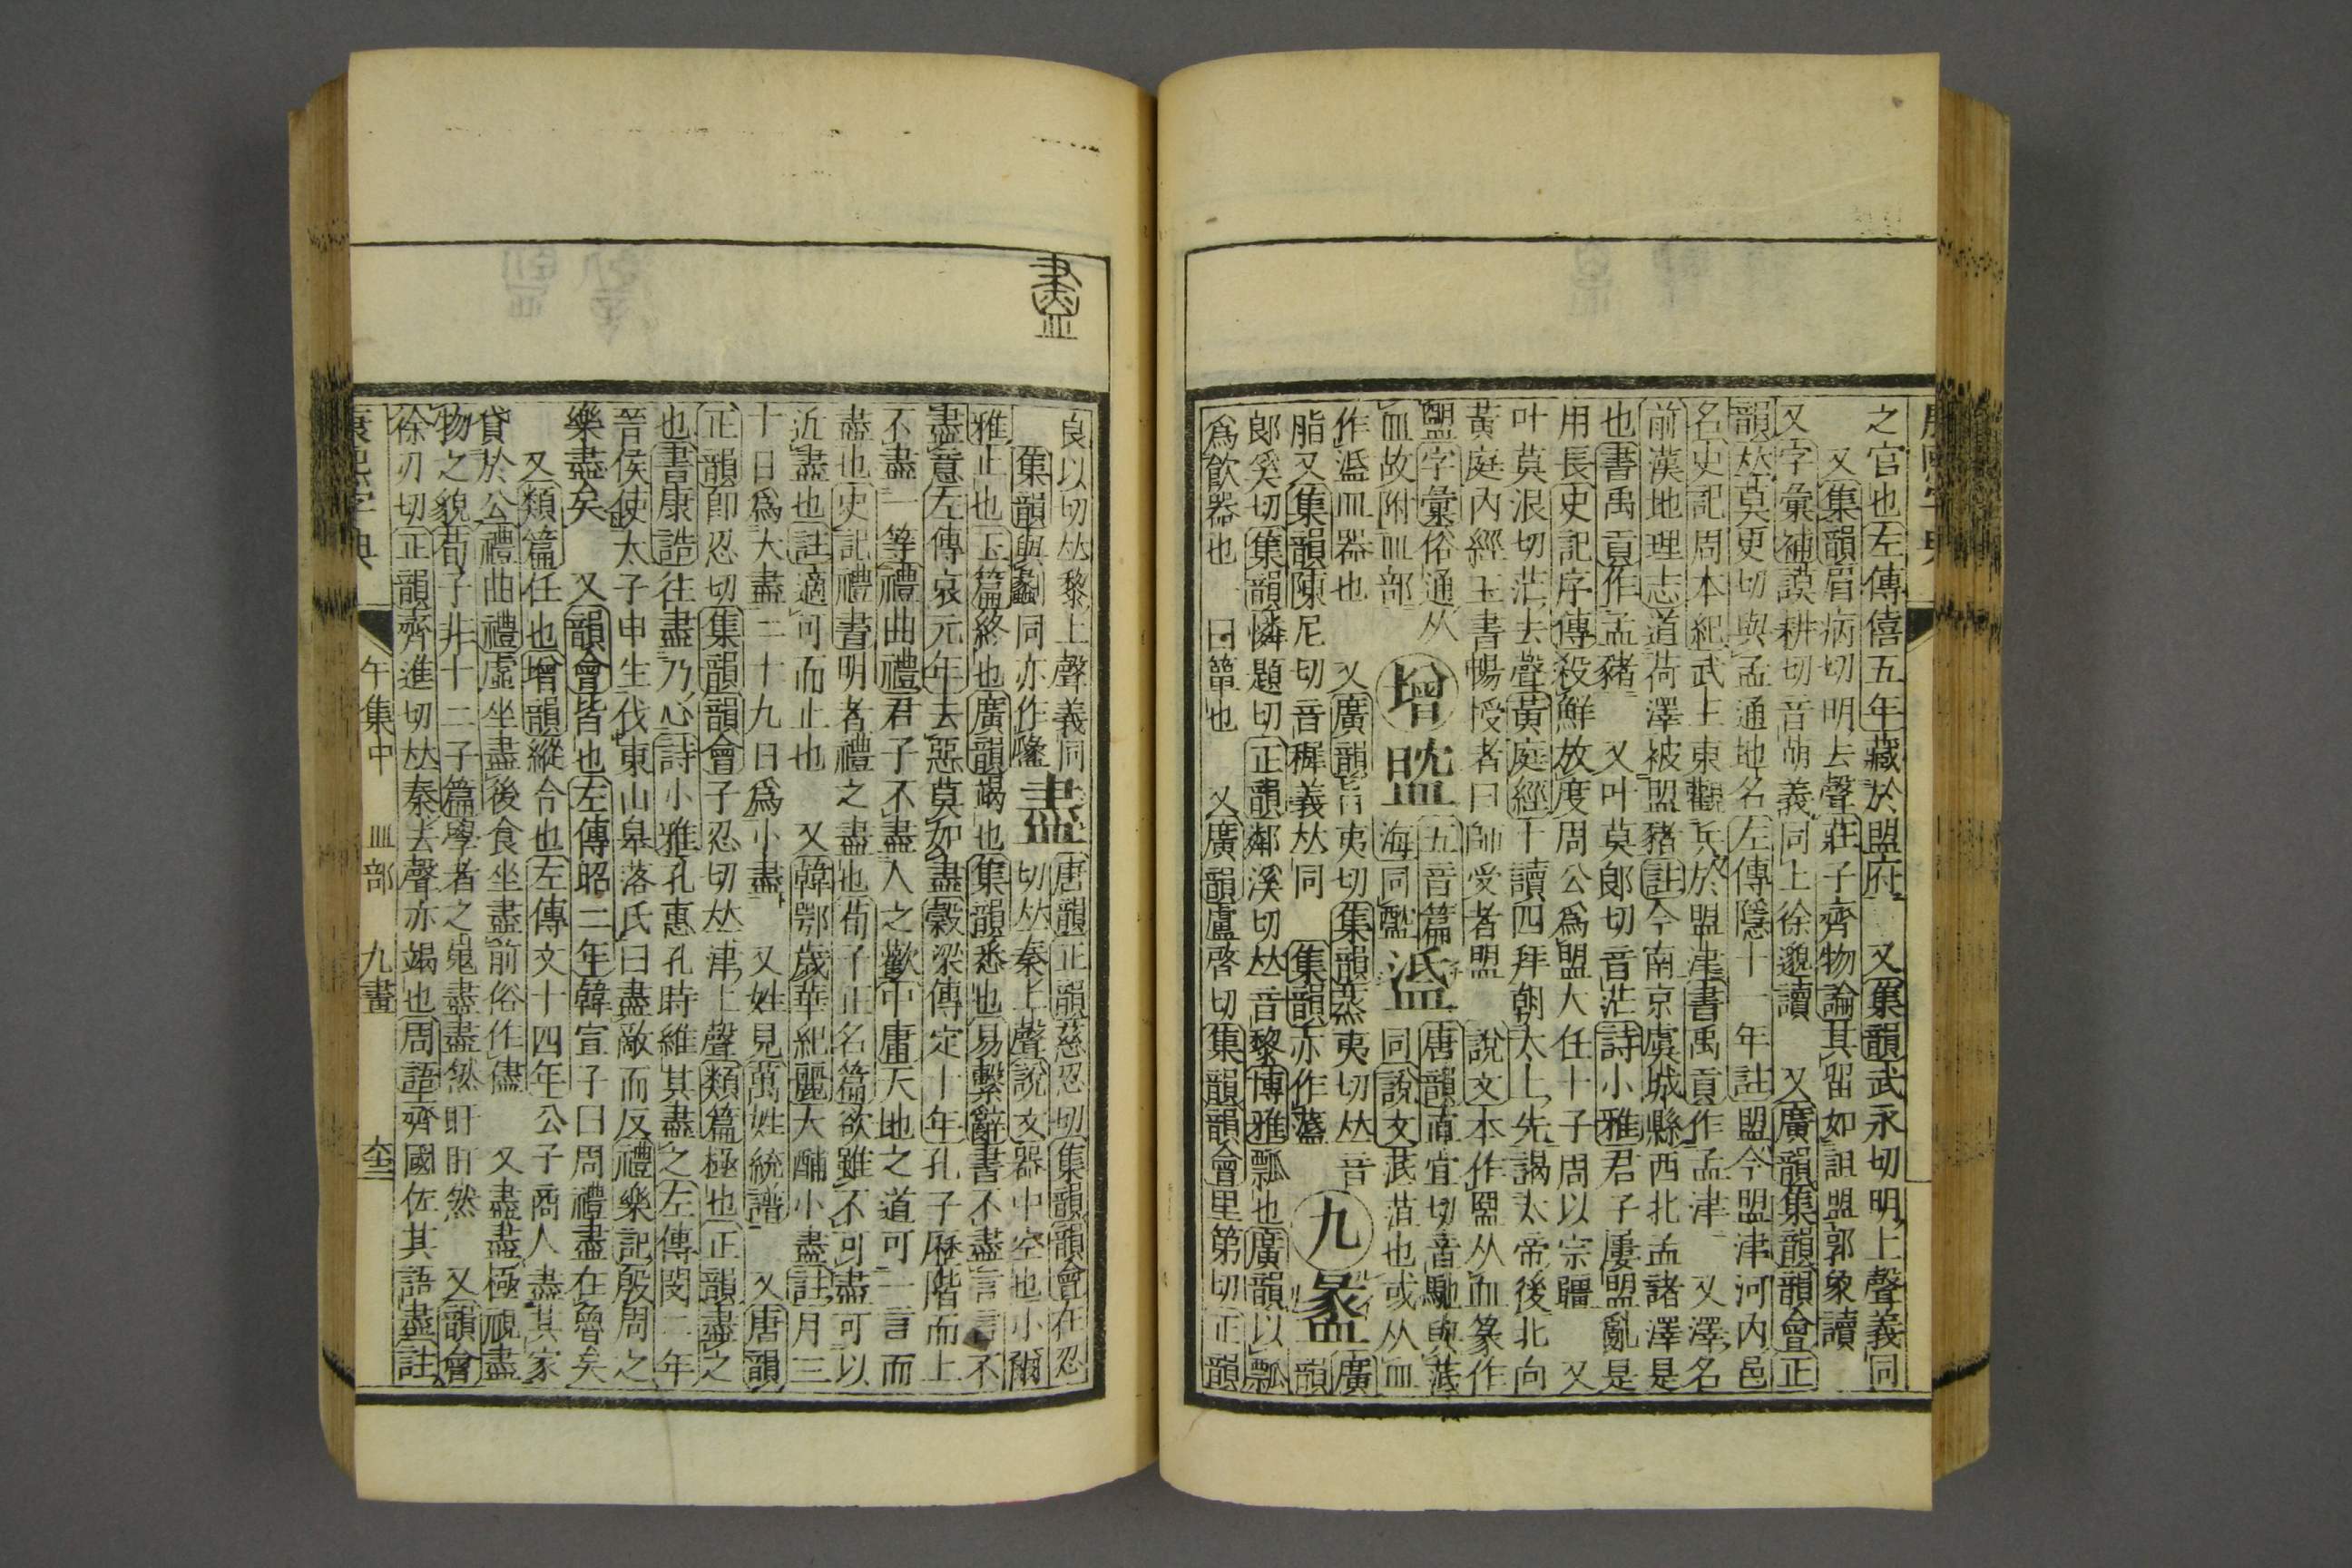 之官也左傳僖五年藏於盟府 又集韻武永切明上聲義同
又集韻眉病切明去聲莊子齊物論其留如詛盟郭象讀
又字彙補謨耕切音萌義同上徐邈讀 又廣韻集韻韻會正
韻𠀤莫更切與孟通地名左傳隱十一年註盟今盟津河內邑
名史記周本紀武王東觀兵於盟津書禹貢作孟津 又澤名
前漢地理志道荷澤被盟豬註今南京虞城縣西北孟諸澤是
也書禹貢作孟豬 又叶莫郞切音茫詩小雅君子屢盟亂是
用長史記序傳殺鮮放度周公爲盟大任十子周以宗疆 又
叶莫浪切茫去聲黃庭經十讀四拜朝太上先謁太帝後北向
黃庭內經玉書暢授者曰師受者盟 說文本作盟从血篆作
盟字彙俗通从
血故附皿部 增 䀮 五音篇海同䀋 㿾 唐韻直宜切音馳與䓜同說文䓜菹也或从血
作㿾皿器也 又廣韻旨夷切集韻蒸夷切𠀤音
脂又集韻陳尼切音墀義𠀤同 集韻亦作䕭 九 盠 廣韻
郞奚切集韻憐題切正韻鄰溪切𠀤音黎博雅瓢也廣韻以瓢
爲飮器也 曰簞也 又廣韻盧啓切集韻韻會里第切正韻
盡
良以切𠀤黎上聲義同
集韻與蠡同亦作𨽻 盡 唐韻正韻慈忍切集韻韻會在忍切𠀤秦上聲說文器中空也小爾
雅止也玉篇終也廣韻竭也集韻悉也易繫辭書不盡言言不
盡意左傳哀元年去惡莫如盡穀梁傳定十年孔子歷階而上
不盡一等禮曲禮君子不盡人之歡中庸天地之道可一言而
盡也史記禮書明者禮之盡也荀子正名篇欲雖不可盡可以
近盡也註適可而止也 又韓鄂歲華紀麗大酺小盡註月三
十日爲大盡二十九日爲小盡 又姓見萬姓統譜 又唐韻
正韻卽忍切集韻韻會子忍切𠀤津上聲類篇極也正韻盡之
也書康誥往盡乃心詩小雅孔惠孔時維其盡之左傳閔二年
晉侯使太子申生伐東山皋落氏曰盡敵而反禮樂記殷周之
樂盡矣 又韻會皆也左傳昭二年韓宣子曰周禮盡在魯矣
又類篇任也增韻縱令也左傳文十四年公子商人盡其家
貸於公禮曲禮虛坐盡後食坐盡前俗作儘 又盡盡極視盡
物之貌荀子非十二子篇學者之嵬盡盡然盱盱然 又韻會
徐刃切正韻齊進切𠀤秦去聲亦竭也周語齊國佐其語盡註
康熙字典 午集中 皿部 九畫